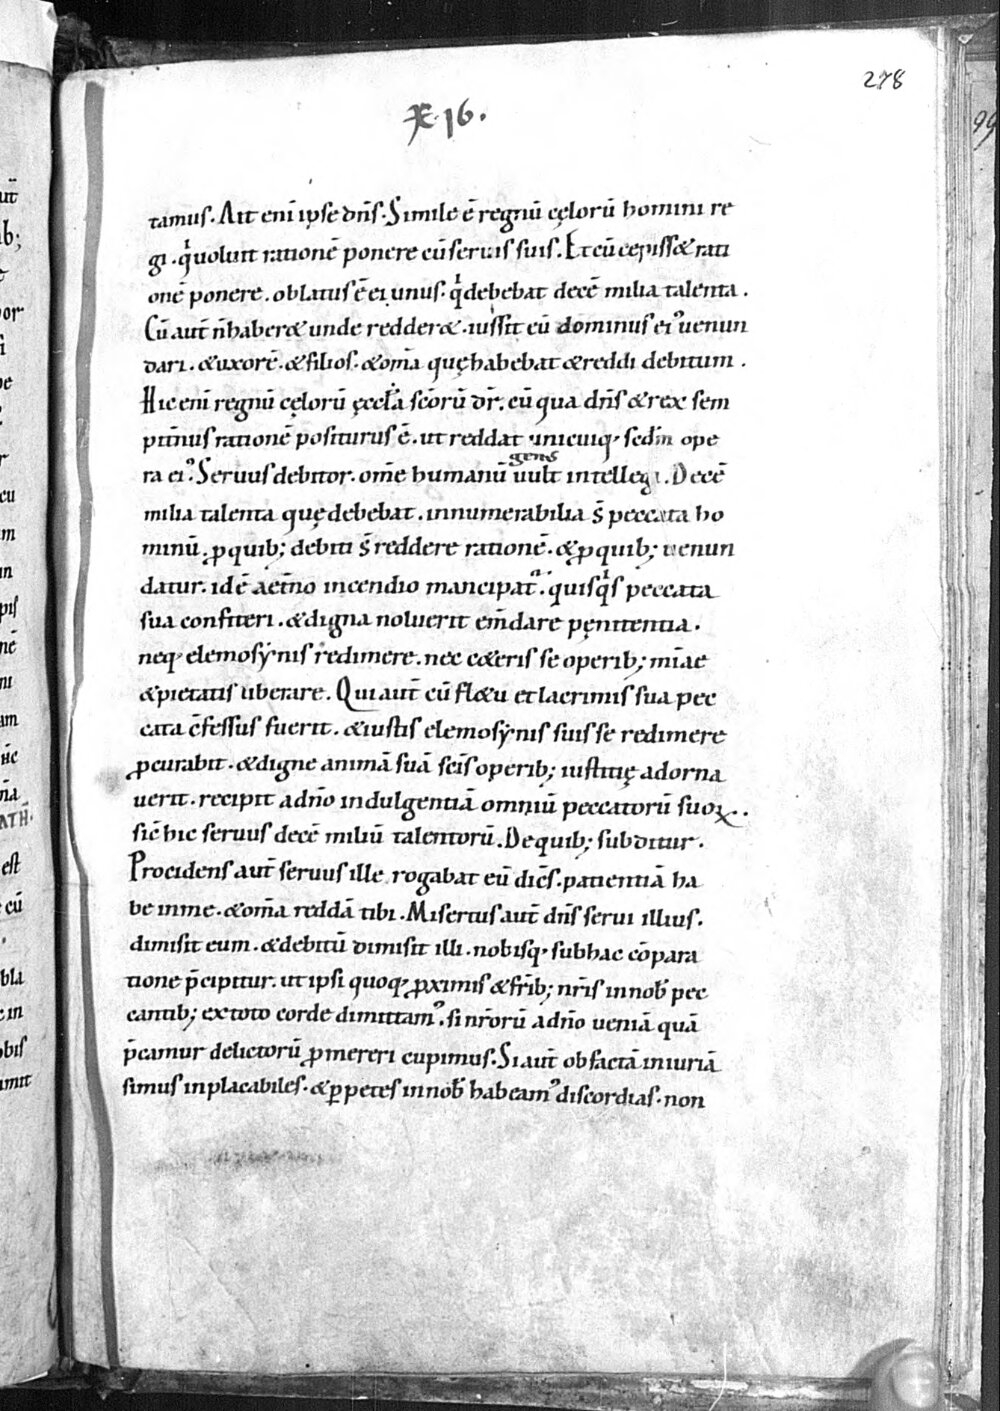 278
Æ·16.
tamus. Ait enī ipse dn̄s. Simile ē regnū cęlorū homini re
gi. qͥ voluit rationē ponere cū servis suis. Et cū cepiss& rati
onē ponere. oblatus ē ei unus. qͥ debebat decē milia talenta.
Cū aut̄ n̄ haber& unde redder&. iussit eū dominus eiꝰ venun
dari. & uxorē. & filios. & om̄a quę habebat & reddi debitum.
Hic enī regnū cęlorū ęccl̄a sc̄orū dr̄. cū qua dn̄s & rex sem
pit̄nus rationē positurus ē. ut reddat unicuiq; sed̄m ope
ra eiꝰ. Servus debitor. om̄e humanū gens̄ vult intellegi. Decē
milia talenta quę debebat. innumerabilia s̄ peccata ho
minū. ꝓ quib; debiti s̄ reddere rationē. & ꝓ quib; venun
datur. idē aet̄no incendio mancipat̄. quisqͥs peccata
sua confiteri. & digna noluerit em̄dare pęnitentia.
neq; elemosẏnis redimere. nec c&eris se operib; mīae
& pietatis liberare. Qui aut̄ cū fl&u et lacrimis sua pec
cata c̄fessus fuerit. & iustis elemosẏnis suis se redimere
ꝓcurabit. & digne animā suā sc̄is operib; iustitię adorna
verit. recipit a dn̄o indulgentiā omniū peccatorū suoꝝ..
sic̄ hic servus decē miliū talentorū. De quib; subditur.
Procidens aut̄ servus ille rogabat eū dic̄s. patientiā ha
be in me. & om̄a reddā tibi. Misertus aut̄ dn̄s servi illius.
dimisit eum. & debitū dimisit illi. nobisq; sub hac cōpara
tione p̄cipitur. ut ipsi quoq; ꝓximis & fr̄ib; nr̄is in nob̄ pec
cantib; ex toto corde dimittamꝰ. si nr̄orū a dn̄o veniā quā
p̄camur delictorū ꝓmereri cupimus. Si aut̄ ob factā iniuriā
simus inplacabiles. & ꝑpetes in nob̄ habeamꝰ discordias. non